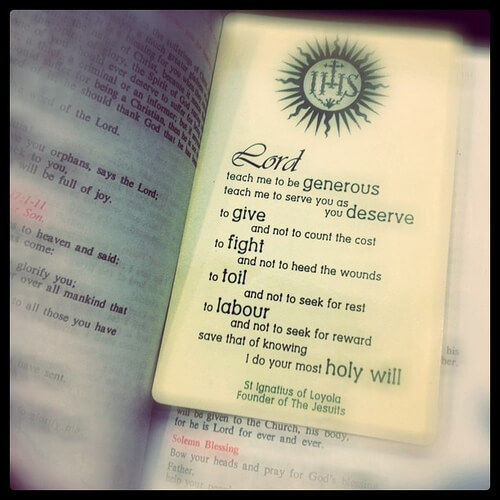 of Christ, the
ever deserve to suffer
criminal or an informer; but if
being a Christian, then
should thank God that he
of the Lord.
orphans, says the Lord;
to you,
will be full of joy.
Son.
to heaven and said:
come:
glorify you;
over all mankind that
to all those you have
have sent.
IHS
Lord
teach me to be generous
teach me to serve you as
you deserve
to give
and not to count the cost
to fight
and not to heed the wounds
to toil
and not to seek for rest
to labour
and not to seek for reward
save that of knowing
I do your most holy will
St Ignatius of Loyola
Founder of The Jesuits
his
will be given to the Church, his body,
for he is Lord for ever and ever.
Solemn Blessing
Bow your heads and pray for God's blessing
Father,